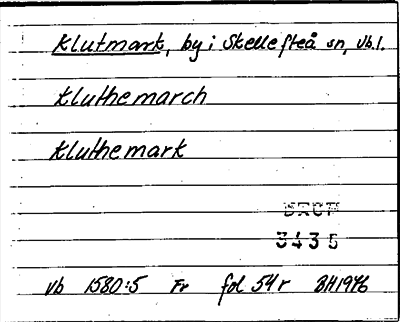 Klutmark, by i Skellefteå sn, Vb.l.
Kluthemarch
Kluthemark
3435
Vb 1580:5 Fr fol 54 r BH1976